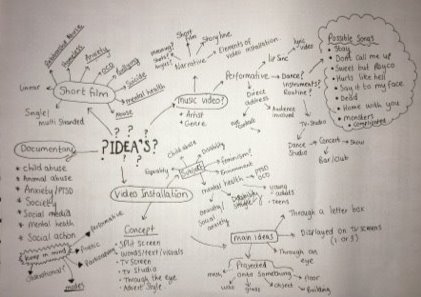 ? IDEA'S ?
Short film
Relationship Abuse
Homeless
Anxiety
OCD
Bullying
Suicide
mental health
Abuse
Linear
Single/
multi Stranded
music video?
+ Artist
+ Genre
Narrative
Short
film
Storyline
Elements of
video installation
meaning?
Performative
Lip Sinc
lyric
video
Dance?
instruments?
Routine?
Direct
address
eye contact
Audience
involved
TV-Studio
Dance
Studio
Concert
Show
Bar/Club
Possible Songs
+ Stay
+ Dont Call me up
+ Sweet but Psyco
+ Hurts like hell
+ Say it to my face
+ Dead
+ Home with you
+ monsters
+ Complicated
Documentary
+ child abuse
+ Animal abuse
+ Anxiety/PTSD
+ Society
+ Social media
+ Mental health
+ Social action
Keep in mind
Performative
Poetic
Participatory
Observational
modes
Video Installation
Concept
+ Split Screen
+ Words/text/visuals
+ TV Screen
+ TV Studio
+ Through the eye
+ Advert Style
Child abuse
Disability
Equality
Feminism?
Environment
mental health
PTSD
OCD
Anxiety/
Social
anxiety
young
adults
teens
main ideas
Through a letter box
Displayed on tv screens
(1 or 3)
Through an
eye
Projected
onto something
mesh
wall
glass
object
floor
Building